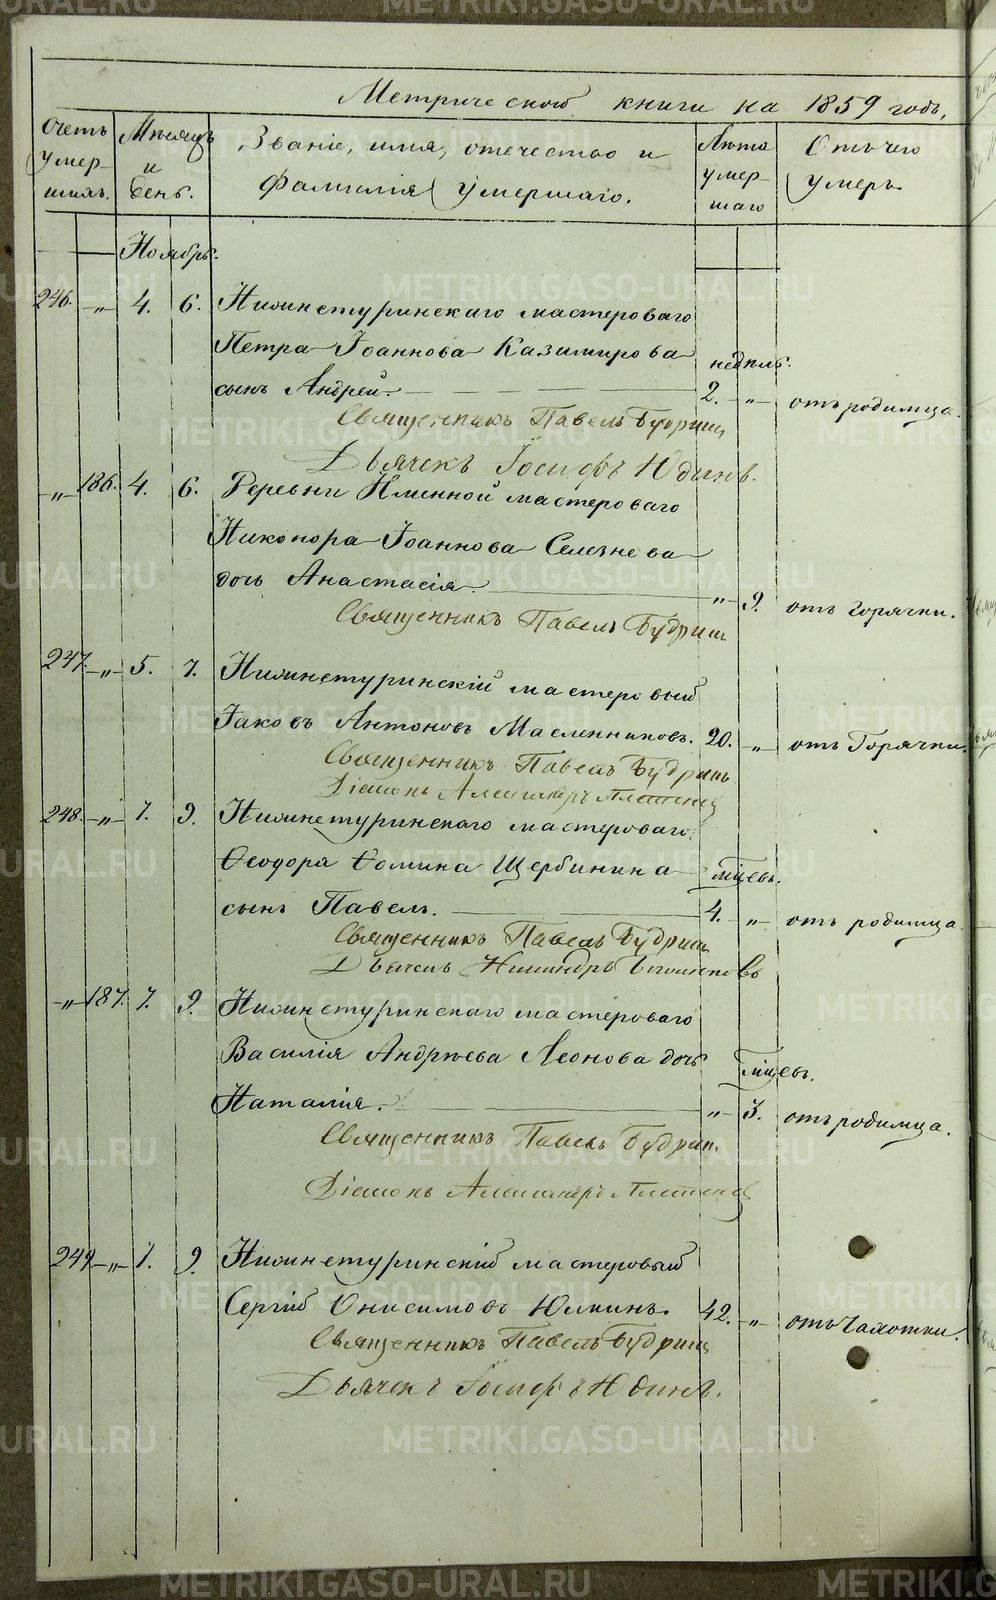 Метрической книги на 1859 годъ,
Счетъ умершихъ.
Мѣсяцъ и день.
Званіе, имя, отечество и фамилія умершаго.
Лѣта умершаго
Отъ чего умеръ
Ноябрь.
246. „ 4. 6. Нижнетуринскаго мастероваго
Петра Іоаннова Казимирова недѣль.
сынъ Андрей. 2. „ отъ родимца.
Священникъ Павелъ Будринъ
Дьячекъ Іосифъ Юдинъ.
„ 186. 4. 6. Деревни Именной мастероваго
Никонора Іоаннова Селезнева
дочь Анастасія. „ 9. отъ горячки.
Священникъ Павелъ Будринъ
247. „ 5. 7. Нижнетуринскій мастеровый
Іаковъ Антоновъ Масленниковъ. 20. „ отъ Горячки.
Священникъ Павелъ Будринъ
Діаконъ Александръ
248. „ 7. 9. Нижнетуринскаго мастероваго
Ѳеодора Ѳомина Щербинина мѣсцевъ.
сынъ Павелъ. 4. „ отъ родимца
Священникъ Павелъ Будринъ
Дьячекъ
„ 187. 7. 9. Нижнетуринскаго мастероваго
Василія Андрѣева Леонова дочь мѣсцевъ.
Наталія. „ 3. отъ родимца.
Священникъ Павелъ Будринъ.
Діаконъ Александръ
249. „ 7. 9. Нижнетуринскій мастеровый
Сергій Онисимовъ Юлкинъ. 42. „ отъ Чахотки.
Священникъ Павелъ Будринъ
Дьячекъ Іосифъ Юдинъ.
METRIKI.GASO-URAL.RU